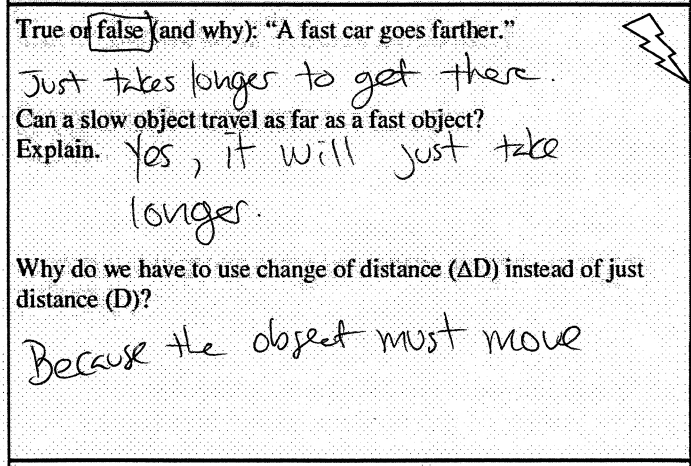 True or false (and why): “A fast car goes farther.”
Just takes longer to get there.
Can a slow object travel as far as a fast object?
Explain. Yes, it will just take
longer.
Why do we have to use change of distance (ΔD) instead of just
distance (D)?
Because the object must move